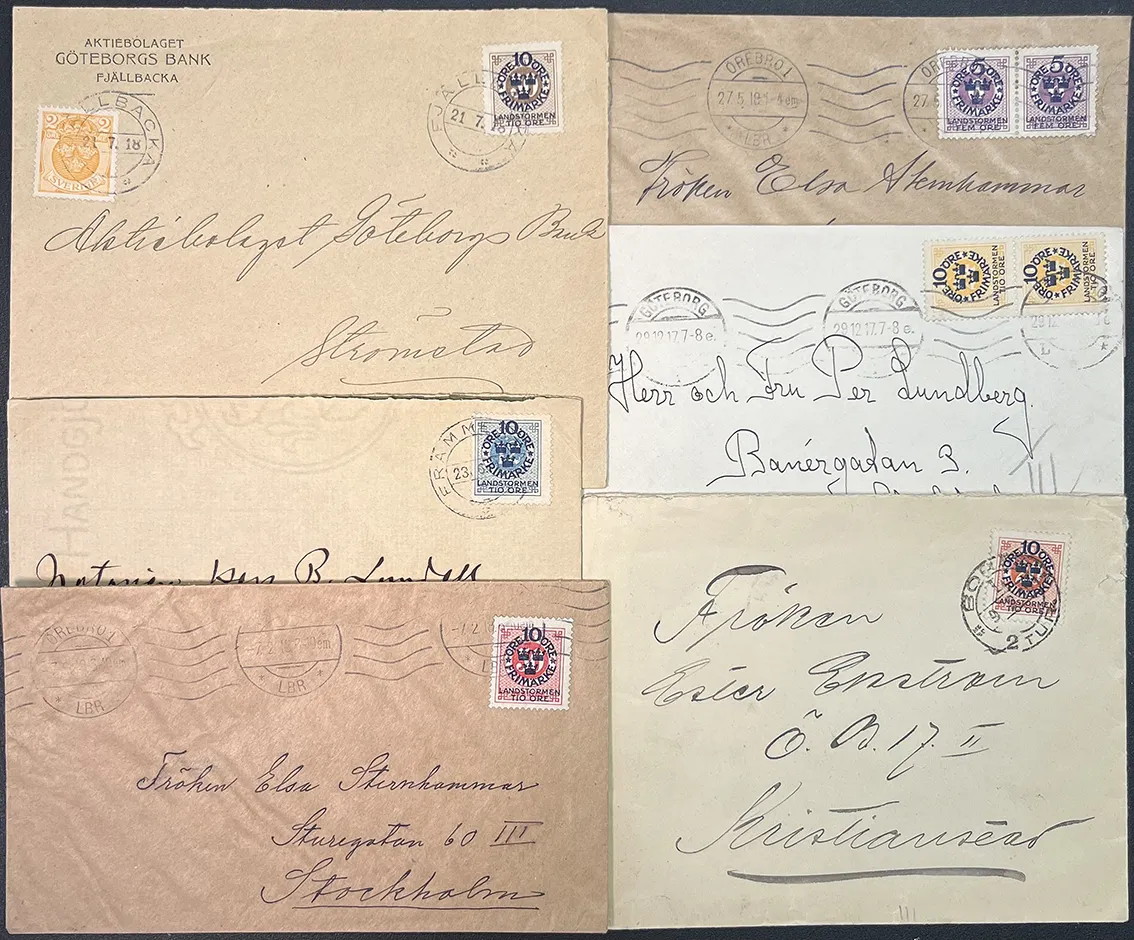 AKTIEBOLAGET
GÖTEBORGS BANK
FJÄLLBACKA
2 2
SVERIGE
LLBACKA
21 7. 18
FJÄLLBACKA
21 7. 18
10
ÖRE ÖRE
FRIMÄRKE
LANDSTORMEN
TIO ÖRE
Aktiebolaget Göteborgs Bank
Strömstad
ÖREBRO 1
27.5.18
LBR
ÖREBRO
27.5
5
ÖRE
FRIMÄRKE
LANDSTORMEN
FEM ÖRE
5
ÖRE
FRIMÄRKE
LANDSTORMEN
FEM ÖRE
Fröken Elsa Sternhammar
GÖTEBORG
29.12.17.7-8 e.
GÖTEBORG
29.12.17.7-8 e.
29.12
L
10 ÖRE
ÖRE FRIMÄRKE
LANDSTORMEN
TIO ÖRE
10 ÖRE
ÖRE FRIMÄRKE
LANDSTORMEN
TIO ÖRE
Herr och Fru Per Lundberg.
Banérgatan 3.
HANDGJ
FRÄMM
23.
10
ÖRE ÖRE
FRIMÄRKE
LANDSTORMEN
TIO ÖRE
Herr B.
ÖREBRO 1
LBR
LBR
10
ÖRE ÖRE
FRIMÄRKE
LANDSTORMEN
TIO ÖRE
Fröken Elsa Sternhammar
Sturegatan 60 III
Stockholm
10
ÖRE ÖRE
FRIMÄRKE
LANDSTORMEN
TIO ÖRE
2 TUR
Fröken
Ester Enström
Ö. B. 17. II
Kristianstad